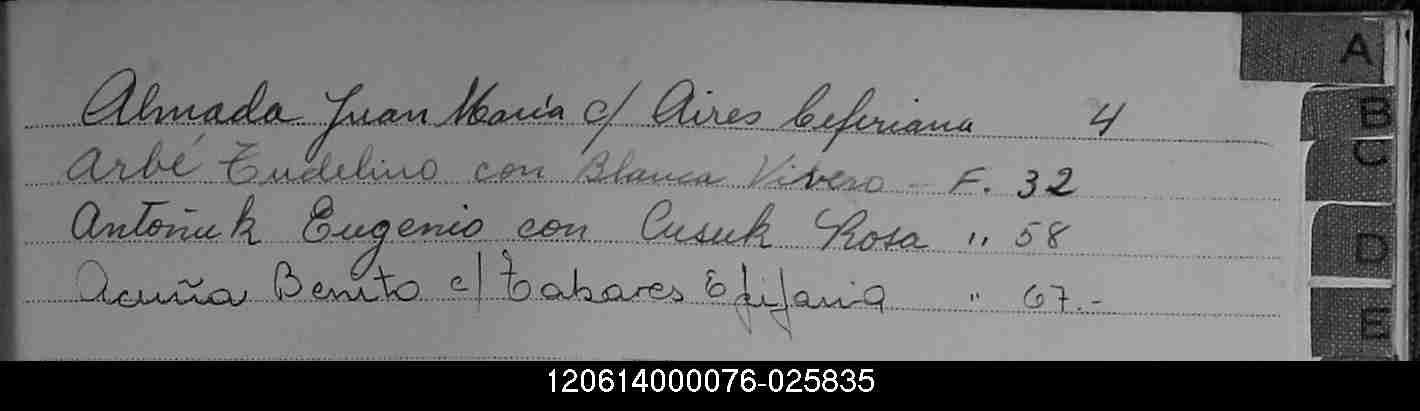 A
Almada Juan María c/ Aires Ceferiana 4
B
Arbé Tudelino con Blanca Vivero - F. 32
C
Antoñuk Eugenio con Cusuk Rosa " 58
D
Acuña Benito c/ Tabares Epifania " 67.-
E
120614000076-025835